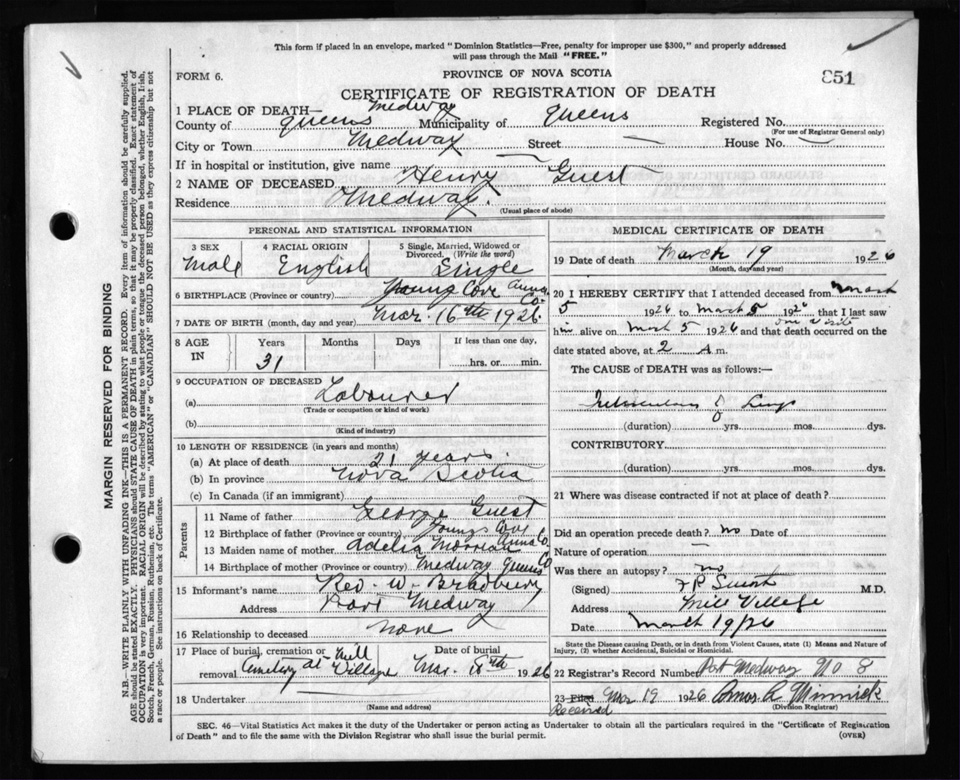 This form if placed in an envelope, marked "Dominion Statistics—Free, penalty for improper use $300," and properly addressed
will pass through the Mail "FREE."
FORM 6.
PROVINCE OF NOVA SCOTIA
851
CERTIFICATE OF REGISTRATION OF DEATH
1 PLACE OF DEATH— Medway
County of Queens Municipality of Queens Registered No.
(For use of Registrar General only)
City or Town Medway Street — House No. —
If in hospital or institution, give name —
2 NAME OF DECEASED Henry Guest
Residence Medway.
(Usual place of abode)
PERSONAL AND STATISTICAL INFORMATION
3 SEX 4 RACIAL ORIGIN 5 Single, Married, Widowed or
Divorced. (Write the word)
Male English Single
6 BIRTHPLACE (Province or country) Youngs Cove Anna. Co.
7 DATE OF BIRTH (month, day and year) Mar. 16th 1926
8 AGE IN Years Months Days If less than one day,
31 hrs. or min.
9 OCCUPATION OF DECEASED
(a) Labourer
(Trade or occupation or kind of work)
(b)
(Kind of industry)
10 LENGTH OF RESIDENCE (in years and months)
(a) At place of death 21 years
(b) In province Nova Scotia
(c) In Canada (if an immigrant)
Parents
11 Name of father George Guest
12 Birthplace of father (Province or country) Youngs Cove Anna Co.
13 Maiden name of mother Adelia
14 Birthplace of mother (Province or country) Medway Queens Co
15 Informant's name Rev. W. Bradbury
Address Port Medway
16 Relationship to deceased none
17 Place of burial, cremation or removal Cemetery at Mill Village Date of burial Mar. 8th 1926
18 Undertaker —
(Name and address)
MEDICAL CERTIFICATE OF DEATH
19 Date of death March 19 1926
(Month, day and year)
20 I HEREBY CERTIFY that I attended deceased from March
5 1926 to March 5 1926 that I last saw
him alive on March 5 1926 and that death occurred on the
one visit
date stated above, at 2 A m.
The CAUSE of DEATH was as follows:—
Tuberculosis of Lungs
(duration) yrs. mos. dys.
CONTRIBUTORY
(duration) yrs. mos. dys.
21 Where was disease contracted if not at place of death?
Did an operation precede death? no Date of
Nature of operation —
Was there an autopsy? no
(Signed) F P Smith M.D.
Address Mill Village
Date March 19/26
State the Disease causing Death, or in death from Violent Causes, state (1) Means and Nature of
Injury, (2) whether Accidental, Suicidal or Homicidal.
22 Registrar's Record Number Port Medway No. 8
23 Filed Mar 19 1926
Received
(Division Registrar)
SEC. 46—Vital Statistics Act makes it the duty of the Undertaker or person acting as Undertaker to obtain all the particulars required in the "Certificate of Registration
of Death" and to file the same with the Division Registrar who shall issue the burial permit.
(OVER)
MARGIN RESERVED FOR BINDING
N.B.—WRITE PLAINLY WITH UNFADING INK—THIS IS A PERMANENT RECORD. Every item of information should be carefully supplied.
AGE should be stated EXACTLY. PHYSICIANS should STATE CAUSE OF DEATH in plain terms, so that it may be properly classified. Exact statement of
OCCUPATION is very important. RACIAL ORIGIN will be described by stating to what people or tongue the deceased person belonged, whether English, Irish,
Scotch, French, German, Russian, Ruthenian, etc. The terms "AMERICAN" or "CANADIAN" SHOULD NOT BE USED as they express citizenship but not
a race or people. See instructions on back of Certificate.